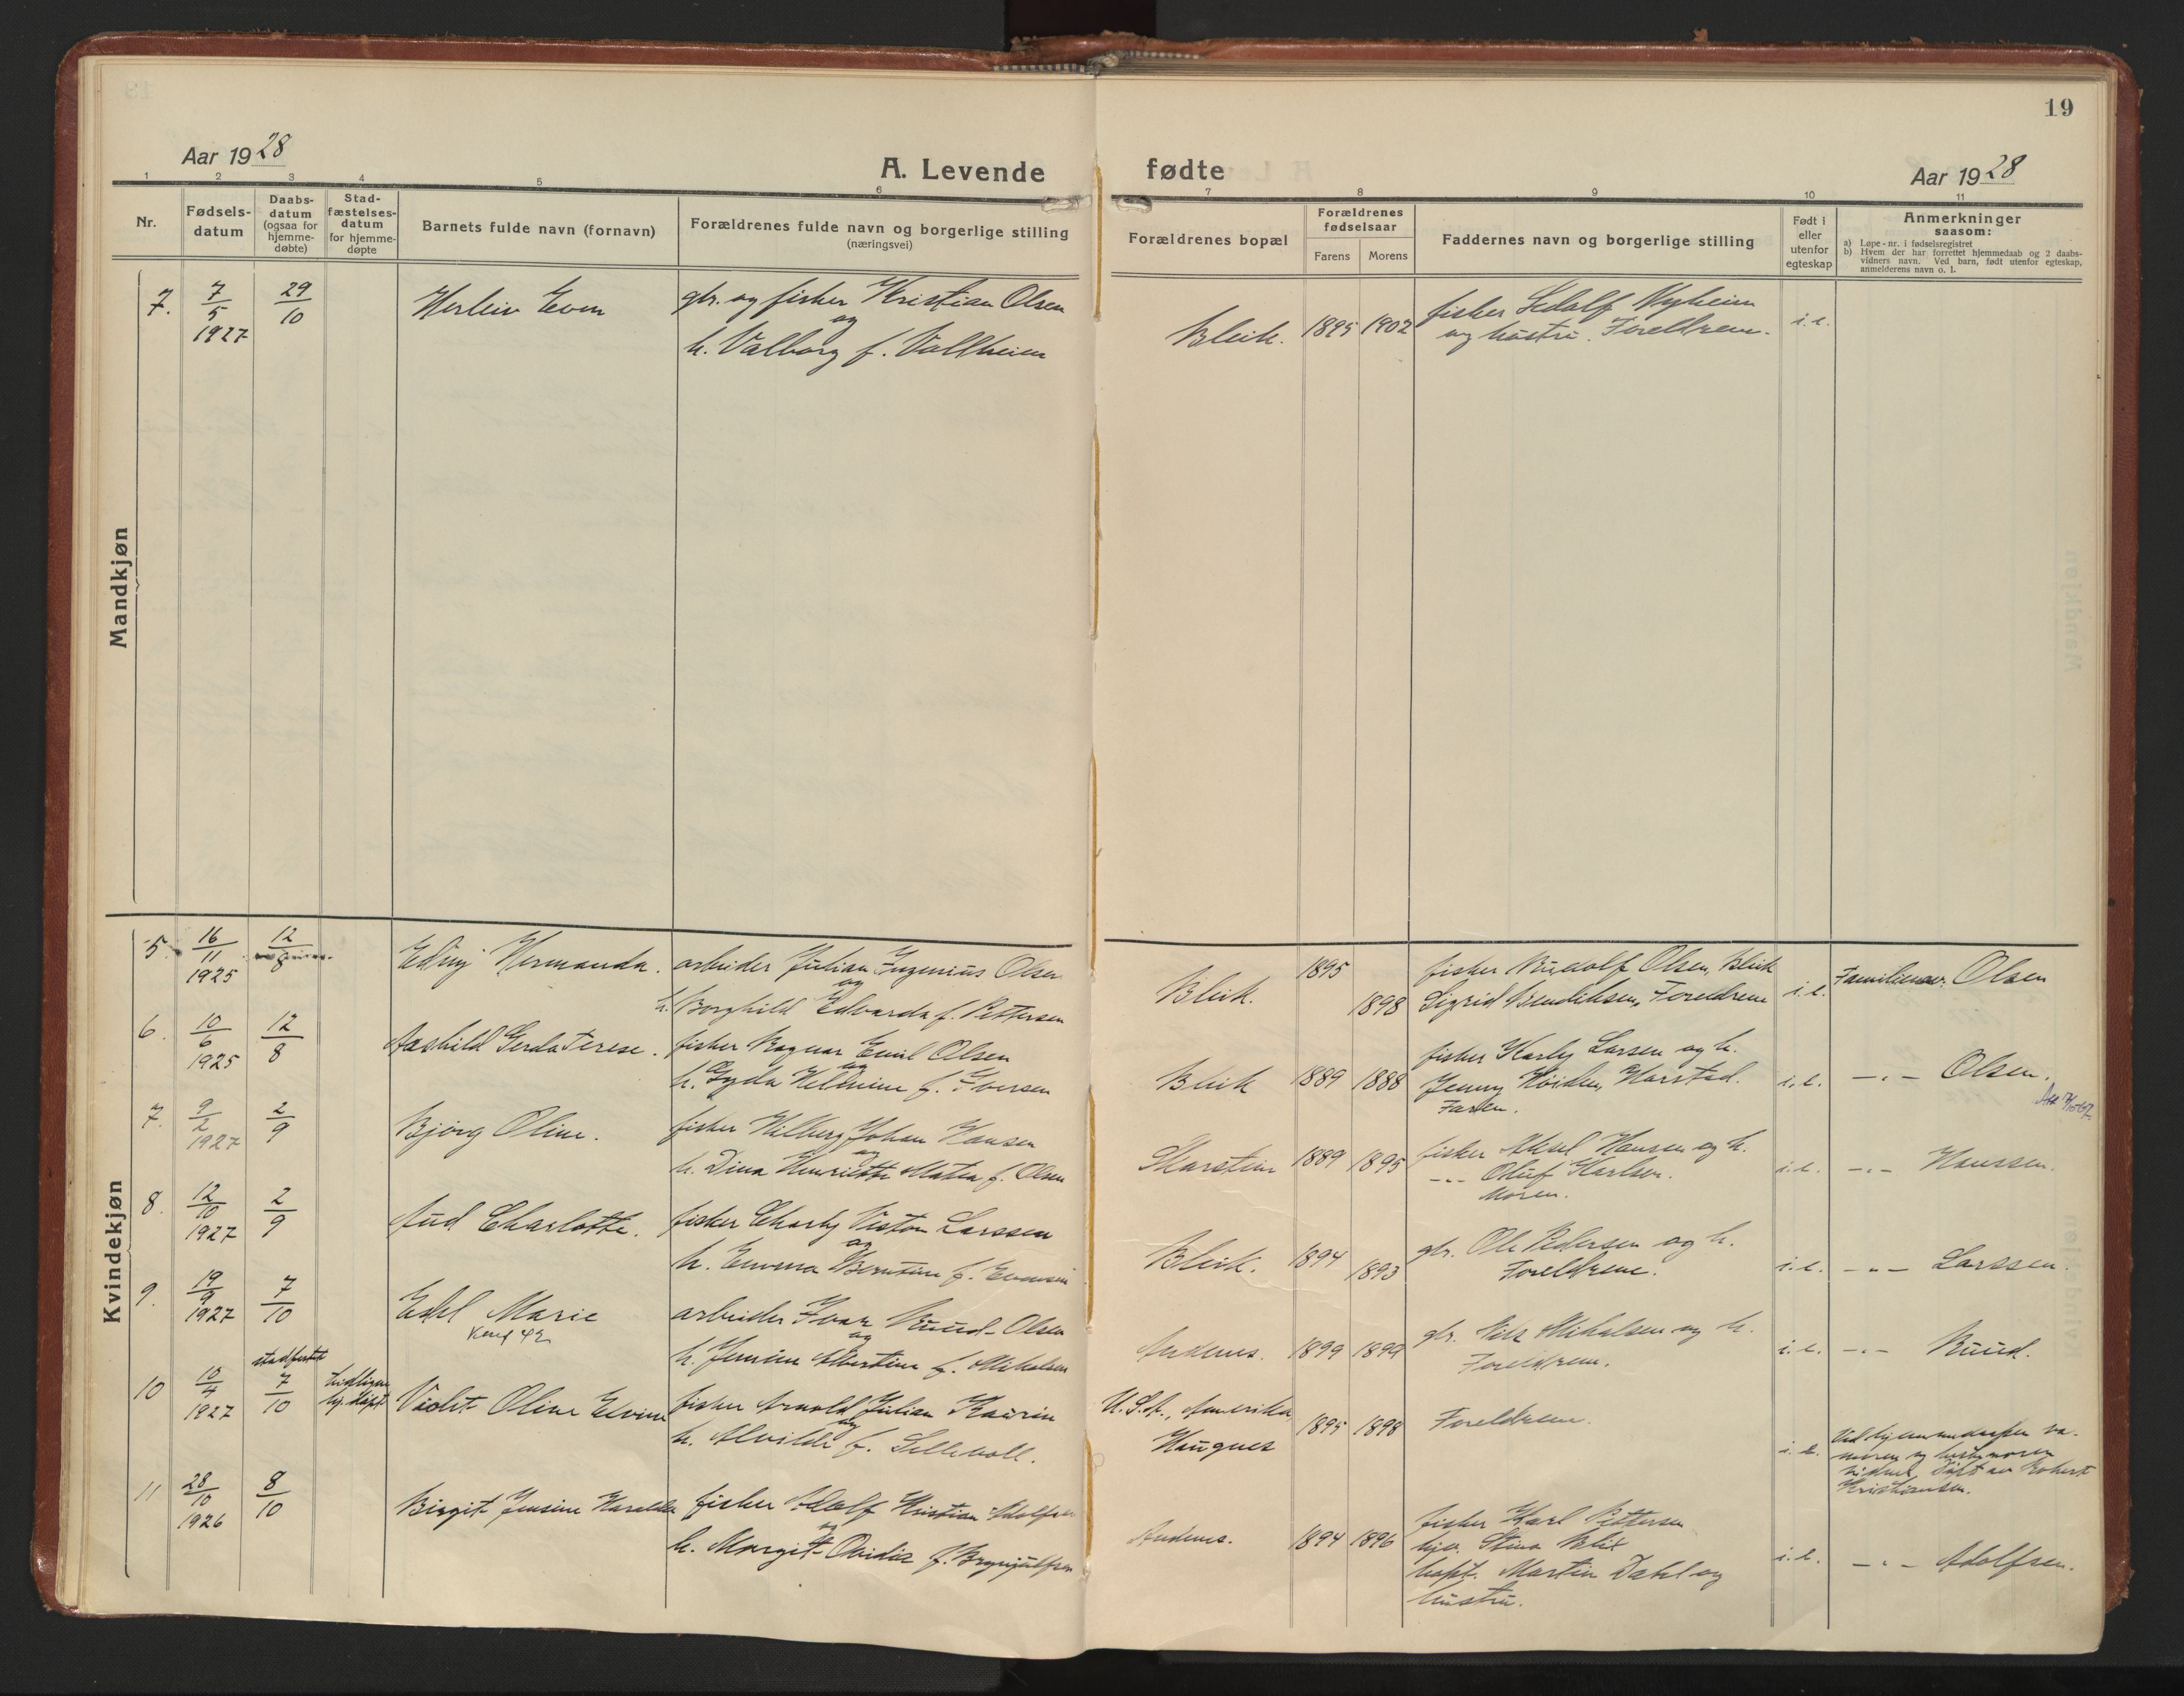 19
Aar 1928
A. Levende fødte
Aar 1928
1 2 3 4 5 6 7 8 9 10 11
Nr.
Fødsels-
datum
Daabs-
datum
(ogsaa for
hjemme-
døbte)
Stad-
fæstelses-
datum
for hjemme-
døpte
Barnets fulde navn (fornavn)
Forældrenes fulde navn og borgerlige stilling
(næringsvei)
Forældrenes bopæl
Forældrenes
fødselsaar
Farens Morens
Faddernes navn og borgerlige stilling
Født i
eller
utenfor
egteskap
Anmerkninger
saasom:
a) Løpe-nr. i fødselsregistret
b) Hvem der har forrettet hjemmedaab og 2 daabs-
vidners navn. Ved barn, født utenfor egteskap,
anmelderens navn o. l.
Mandkjøn
7. 7/5 1927 29/10
Herleiv Even
gbr. og fisker Kristian Olsen
og
h. Valborg f. Vollheim
Bleik. 1895 1902
fisker Myheim
og hustru. Foreldrene.
i.e.
Kvindekjøn
5. 16/11 1925 12/8
Hermanda.
arbeider Julian Ingenius Olsen
og
h. Borghild Edvarda f. Pettersen
Bleik. 1895 1898
fisker Rudolf Olsen, Bleik
Sigrid Bendiksen, Foreldrene
i.e. Familienavn Olsen
6. 10/6 1925 12/8
Aashild Gerda Terese.
fisker Ragnar Emil Olsen
og
h. Gyda f. Iversen
Bleik 1889 1888
fisker Karly Larsen og h.
Jenny Harstad.
Faren.
i.e. -"- Olsen.
7. 9/2 1927 2/9
Bjørg Oline.
fisker Hilberg Johan Hansen
og
h. Dina Henriette Matea f. Olsen
Skarstein 1889 1895
fisker Aksel Hansen og h.
-"- Oluf Karlsen.
Moren.
i.e. -"- Hanssen.
8. 12/10 1927 2/9
Aud Charlotte.
fisker Charly Viston Larssen
og
h. Emma Berntine f.
Bleik. 1894 1893
gbr. Ole Pedersen og h.
Foreldrene.
i.e. -"- Larssen.
9. 19/9 1927 7/10
Edel Marie
Konf 42
arbeider Ivar Ruud-Olsen
og
h. Jensine Albertine f. Mikalsen
Andenes. 1899 1899
gbr. Nils Mikalsen og h.
Foreldrene.
i.e. -"- Ruud.
10 10/4 1927 stadfestet 7/10
tidligere
hj.døpt
Violet Oline Elvine
fisker Arnold Julian Kaurin
og
h. Alvilde f. Sellevoll.
U.S.A., Amerika,
Haugnes
1895 1898
Foreldrene.
i.e.
Ved hjemmedaapen va-
moren og
vidner. Døpt av Robert
Kristiansen.
11 28/10 1926 8/10
Birgit Jensine
fisker Adolf Kristian Adolfsen
og
h. Margit Ovidia f. Brynjulfsen
Andenes. 1894 1896
fisker Karl Pettersen
Stina Blix
kapt. Martin Dahl og
hustru.
i.e. -"- Adolfsen.